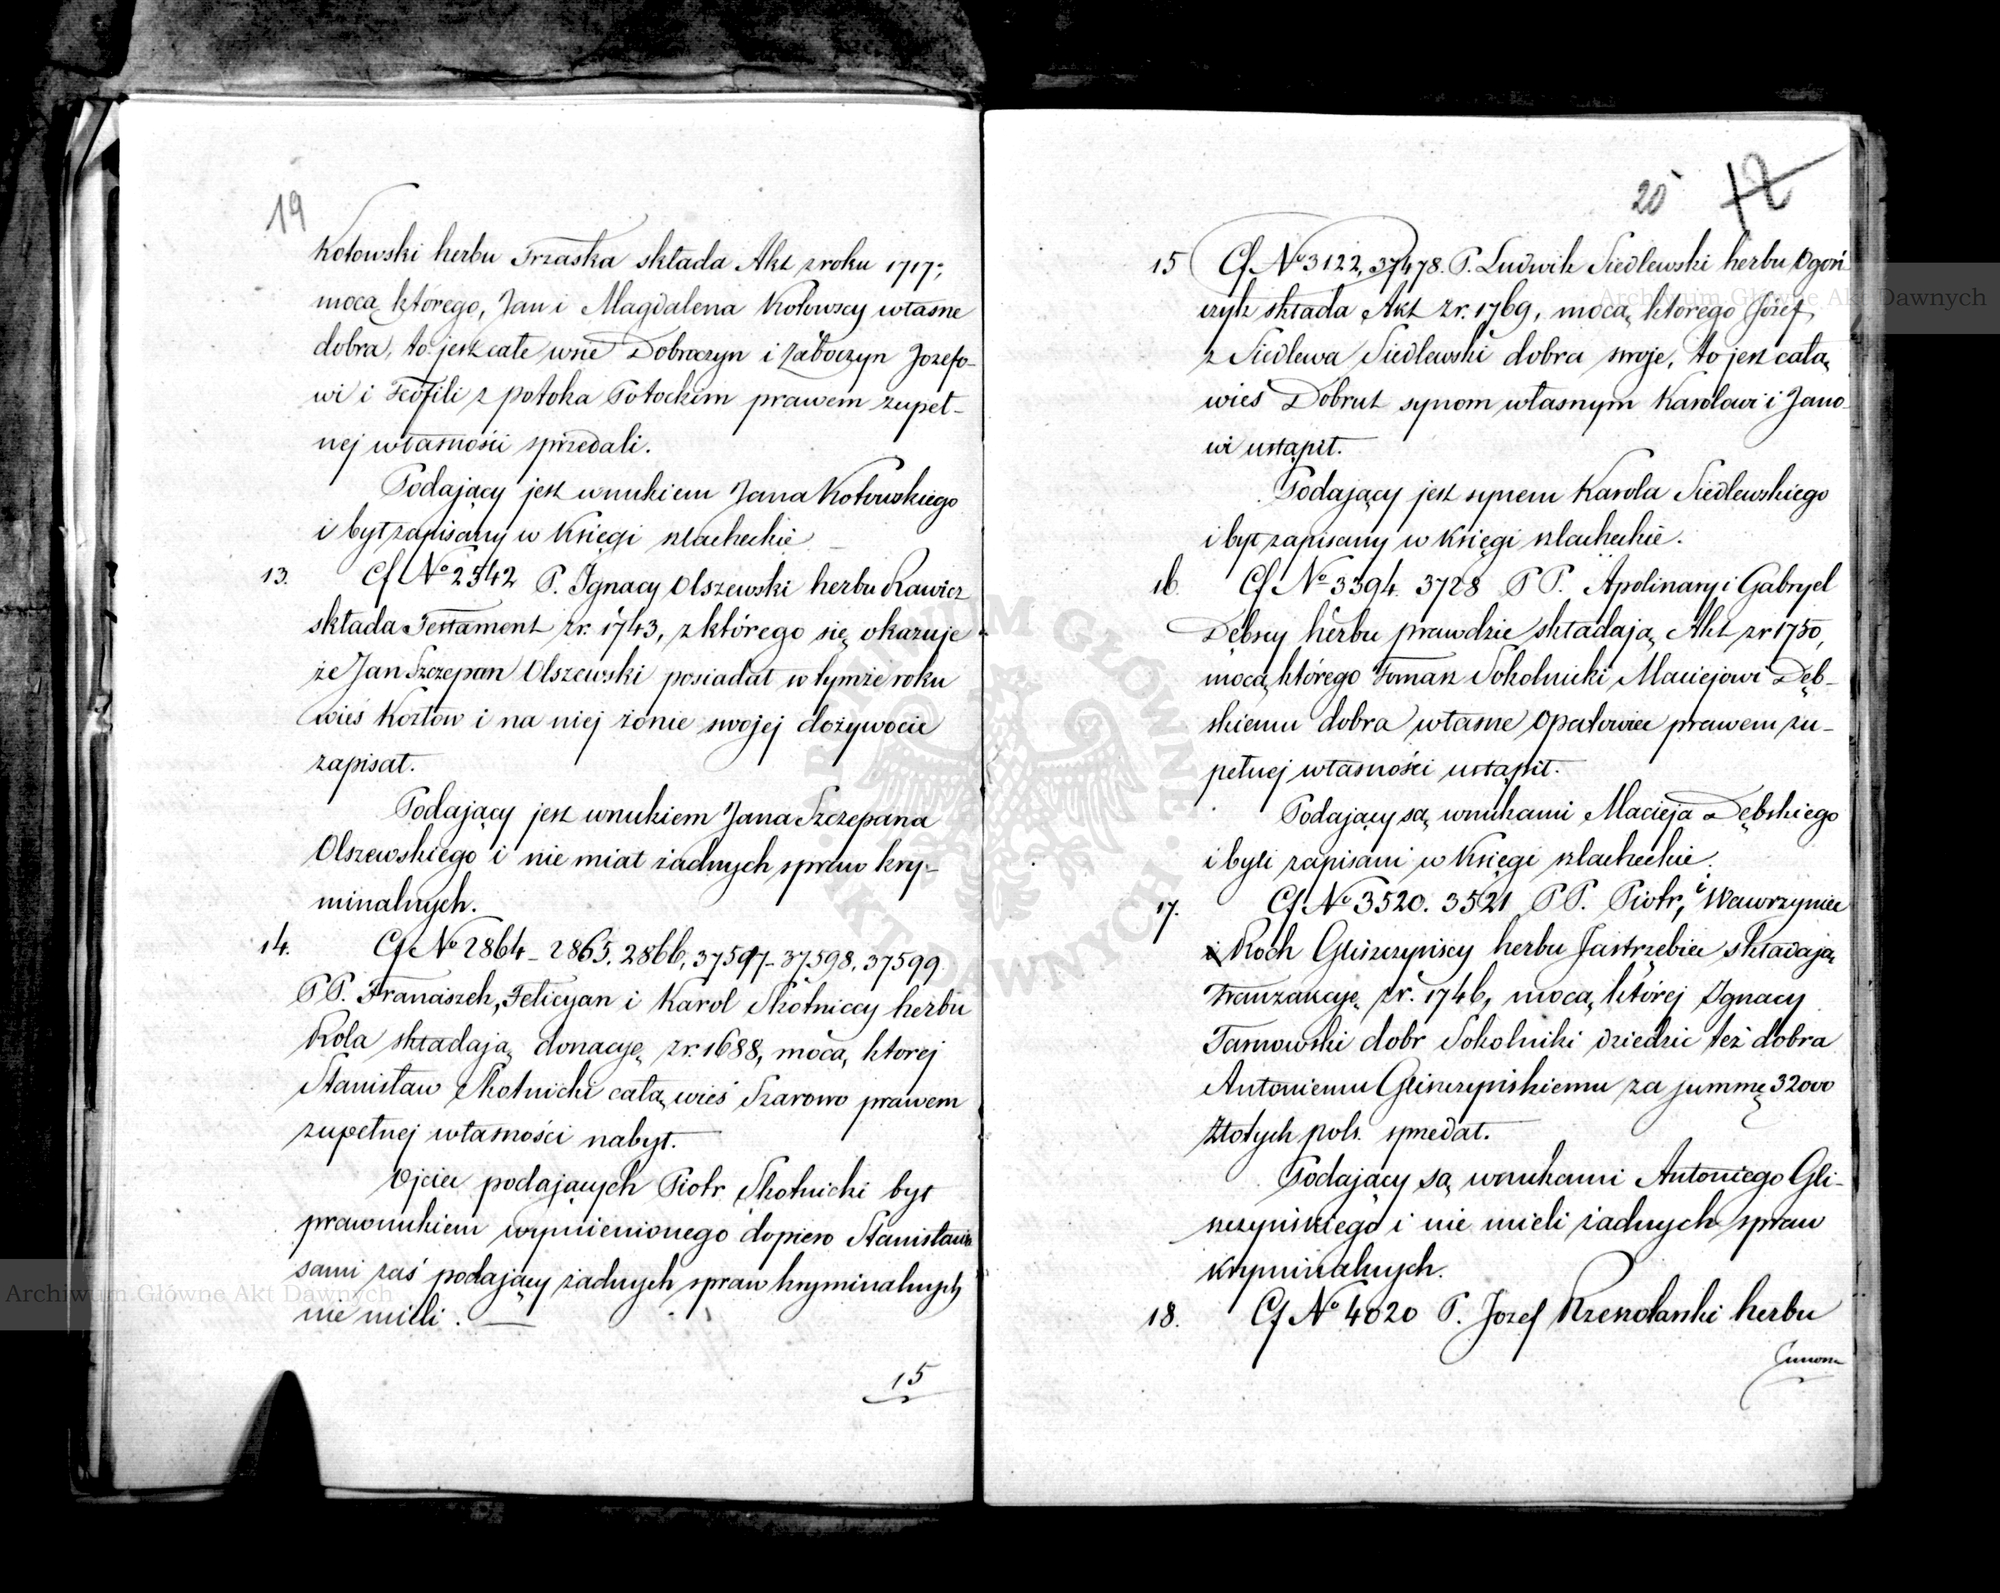 19
Kotowski herbu Trzaska składa Akt z roku 1717;
mocą którego, Jan i Magdalena Kotowscy własne
dobra, to jest całe wsie Dobroczyn i Zaboczyn Jozefo-
wi i Teofili z potoka Potockim prawem zupeł-
nej własności sprzedali.
Podający jest wnukiem Jana Kotowskiego
i był zapisany w Księgi szlacheckie
13. Cf No 2542 P. Ignacy Olszewski herbu Rawicz
składa Testament zr. 1743, z którego się okazuje
że Jan Szczepan Olszewski posiadał w tymże roku
wieś Kozłow i na niej żonie swojej dożywocie
zapisał.
Podający jest wnukiem Jana Szczepana
Olszewskiego i nie miał żadnych spraw kry-
minalnych.
14. Cf No 2864 - 2865. 2866, 37597 - 37598. 37599
PP. Franciszek, Felicyan i Karol Skotniccy herbu
Rola składają donacyę zr. 1688, mocą ktorej
Stanisław Skotnicki całą wieś Szarowo prawem
zupełnej własności nabył.
Ojciec podających Piotr Skotnicki był
prawnukiem wymienionego dopiero Stanisława
sami zaś podający żadnych spraw kryminalnych
nie mieli.
15
20 12
15 Cf. No 3122, 37478. P. Ludwik Siedlewski herbu Ogoń
czyk składa Akt zr. 1769, mocą ktorego Józef
z Siedlewa Siedlewski dobra swoje, to jest całą
wieś Dobrut synom własnym Karolowi i Jano-
wi ustąpił.
Podający jest synem Karola Siedlewskiego
i był zapisany w Księgi szlacheckie.
16. Cf No 3394. 3728 PP. Apolinary i Gabryel
Dębscy herbu prawdzic składają Akt zr 1750,
mocą którego Tomasz Sokolnicki Maciejowi Dęb-
skiemu dobra własne Opatowiec prawem zu-
pełnej własności ustąpił.
Podający są wnukami Macieja Dębskiego
i byli zapisani w Księgi szlacheckie.
17. Cf No 3520. 3521 PP. Piotr, i Wawrzyniec
i Roch Gliszczyńscy herbu Jastrzębiec składają
Tranzakcyę zr. 1746, mocą której Ignacy
Tarnowski dobr Sokolniki dziedzic też dobra
Antoniemu Gliszczyńskiemu za summę 32000
Złotych pols. sprzedał.
Podający są wnukami Antoniego Gli-
szczyńskiego i nie mieli żadnych spraw
kryminalnych.
18. Cf No 4020 P. Jozef Rzeszotarski herbu
Junosza
Archiwum Główne Akt Dawnych
Archiwum Główne Akt Dawnych
ARCHIWUM GŁÓWNE AKT DAWNYCH